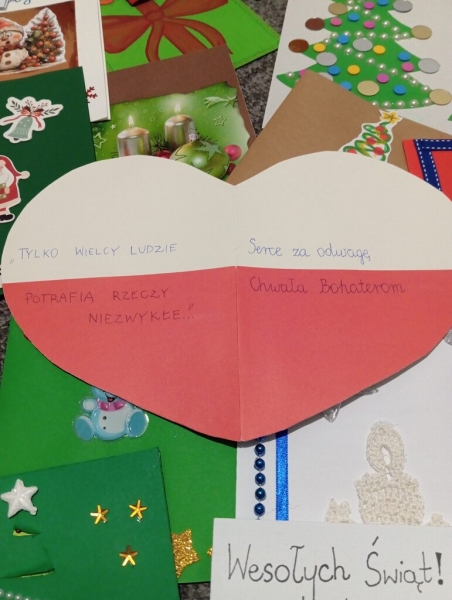 „TYLKO WIELCY LUDZIE
POTRAFIĄ RZECZY
NIEZWYKŁE..."
Serce za odwagę,
Chwała Bohaterom
Wesołych Świąt!